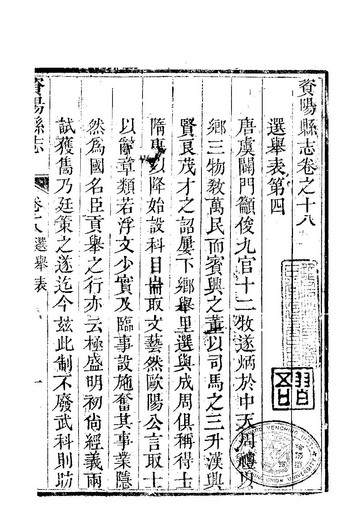 資陽縣志卷之十八
選舉表第四
唐虞闢門籲俊九官十二牧遂炳於中天周禮以
鄉三物教萬民而賓興之董以司馬之三升漢興
賢良茂才之詔屢下鄉舉里選與成周俱稱得士
隋唐以降始設科目耑取文藝然歐陽公言取士
以辭章類若浮文少實及臨事設施奮其事業隱
然為國名臣貢舉之行亦云極盛明初尚經義兩
試獲雋乃廷策之遂迄今茲此制不廢武科則昉
資陽縣志
卷十八選舉表
一